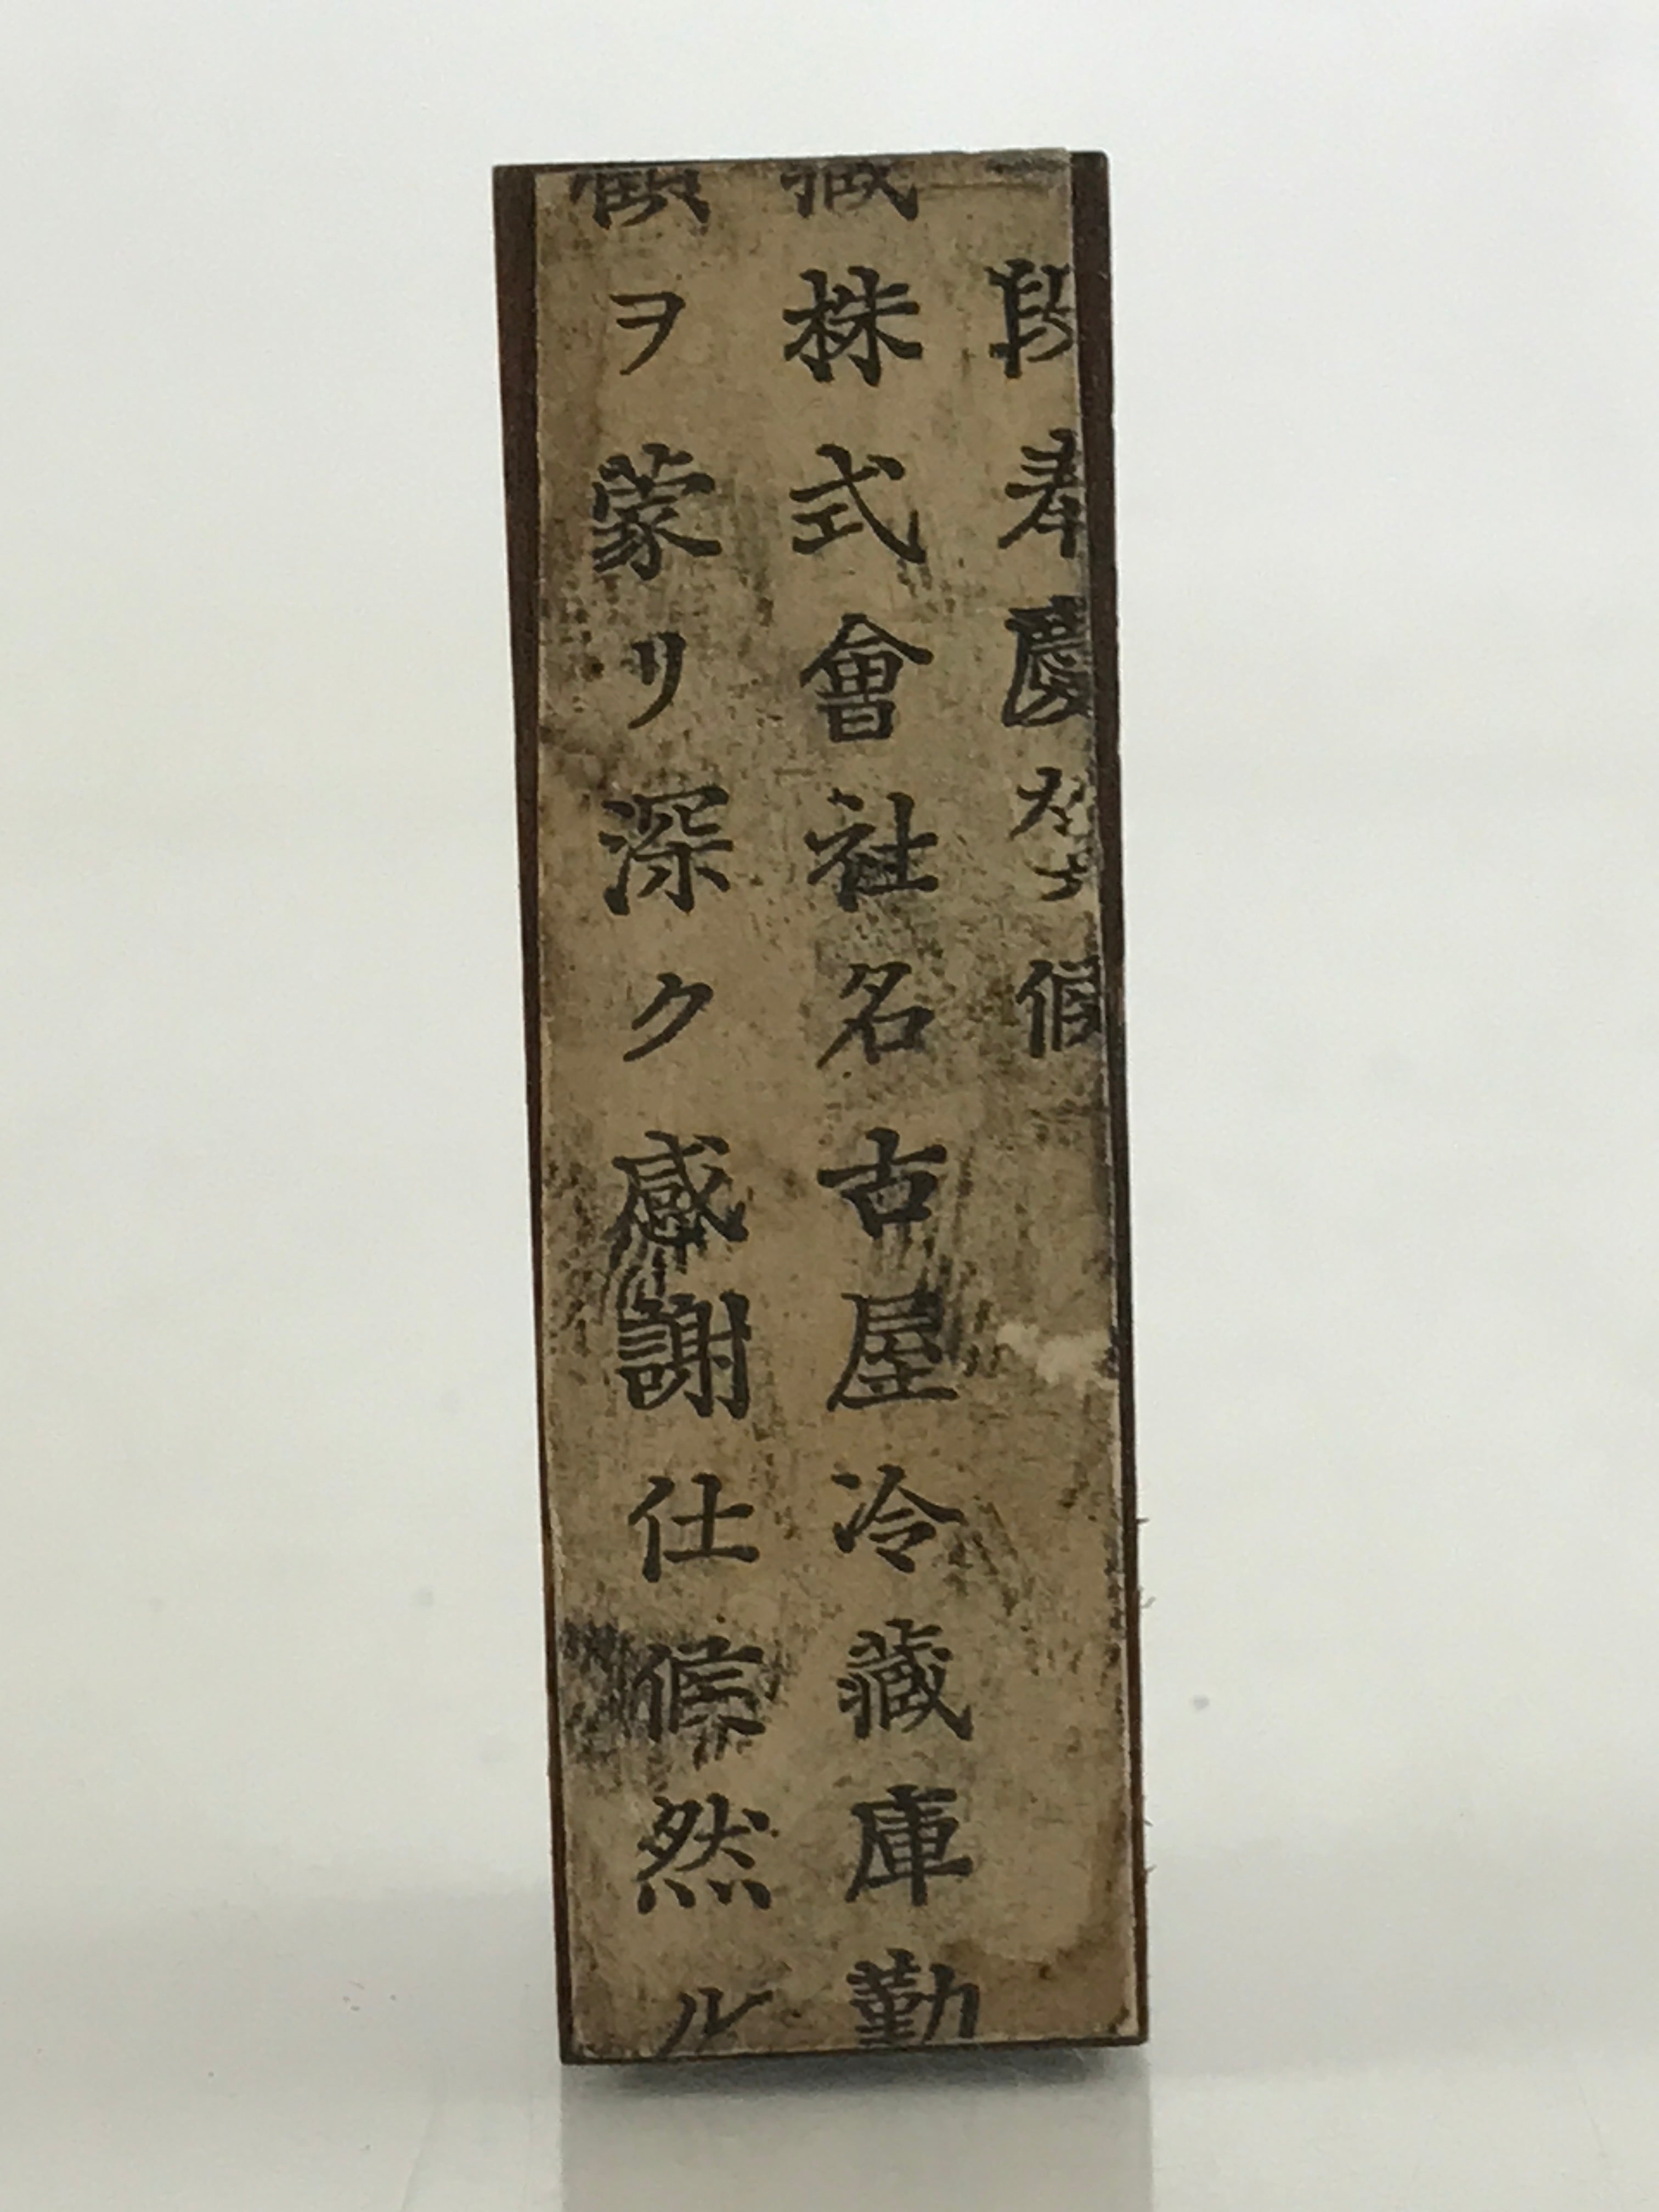 段奉慶賀候
株式會社名古屋冷藏庫勤
顧ヲ蒙リ深ク感謝仕候然ル